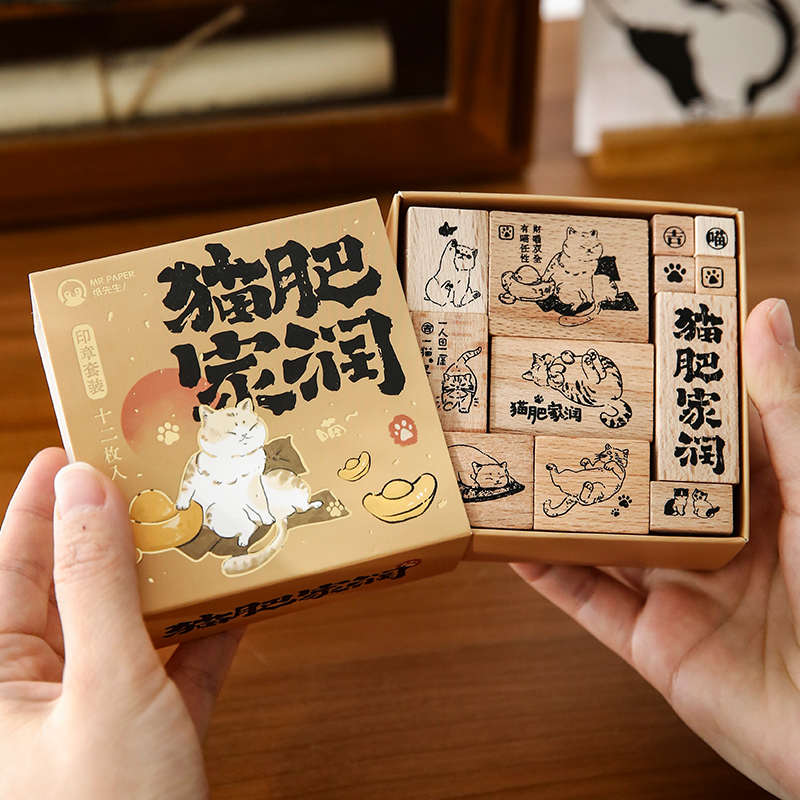 MR.PAPER
纸先生/
猫肥
家润
印章套装
十二枚入
喵~
猫肥家润
财喵双全
有喵任性
吉
喵
一人困一屋
一猫
猫肥家润
猫肥家润